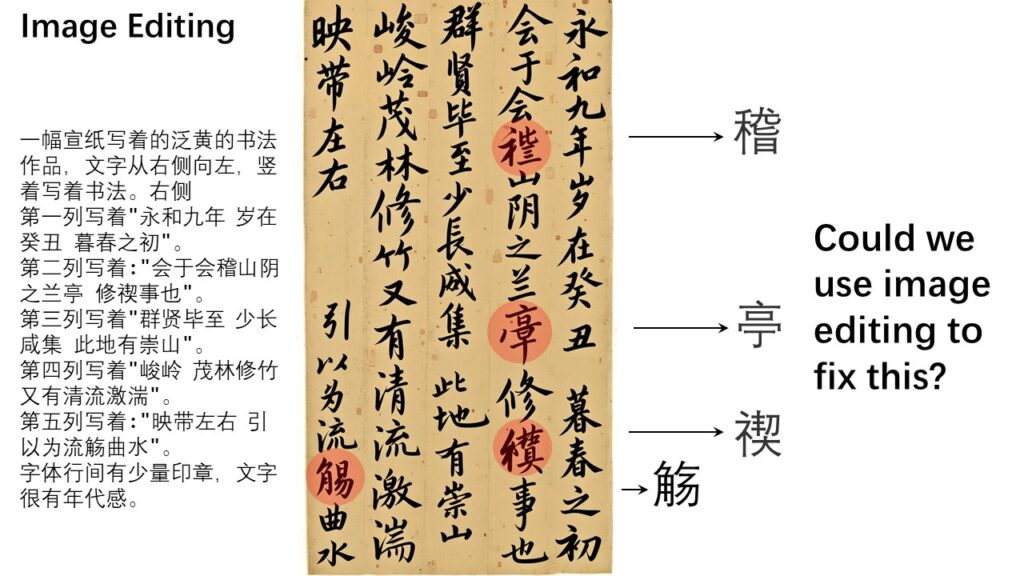 Image Editing
一幅宣纸写着的泛黄的书法
作品，文字从右侧向左，竖
着写着书法。右侧
第一列写着"永和九年 岁在
癸丑 暮春之初"。
第二列写着:"会于会稽山阴
之兰亭 修禊事也"。
第三列写着"群贤毕至 少长
咸集 此地有崇山"。
第四列写着"峻岭 茂林修竹
又有清流激湍"。
第五列写着:"映带左右 引
以为流觞曲水"。
字体行间有少量印章，文字
很有年代感。
永和九年岁在癸丑 暮春之初
会于会山阴之兰修事也
群贤毕至少長咸集 此地有崇山
峻岭茂林修竹又有清流激湍
映带左右 引以为流曲水
稽
亭
禊
觞
Could we
use image
editing to
fix this?